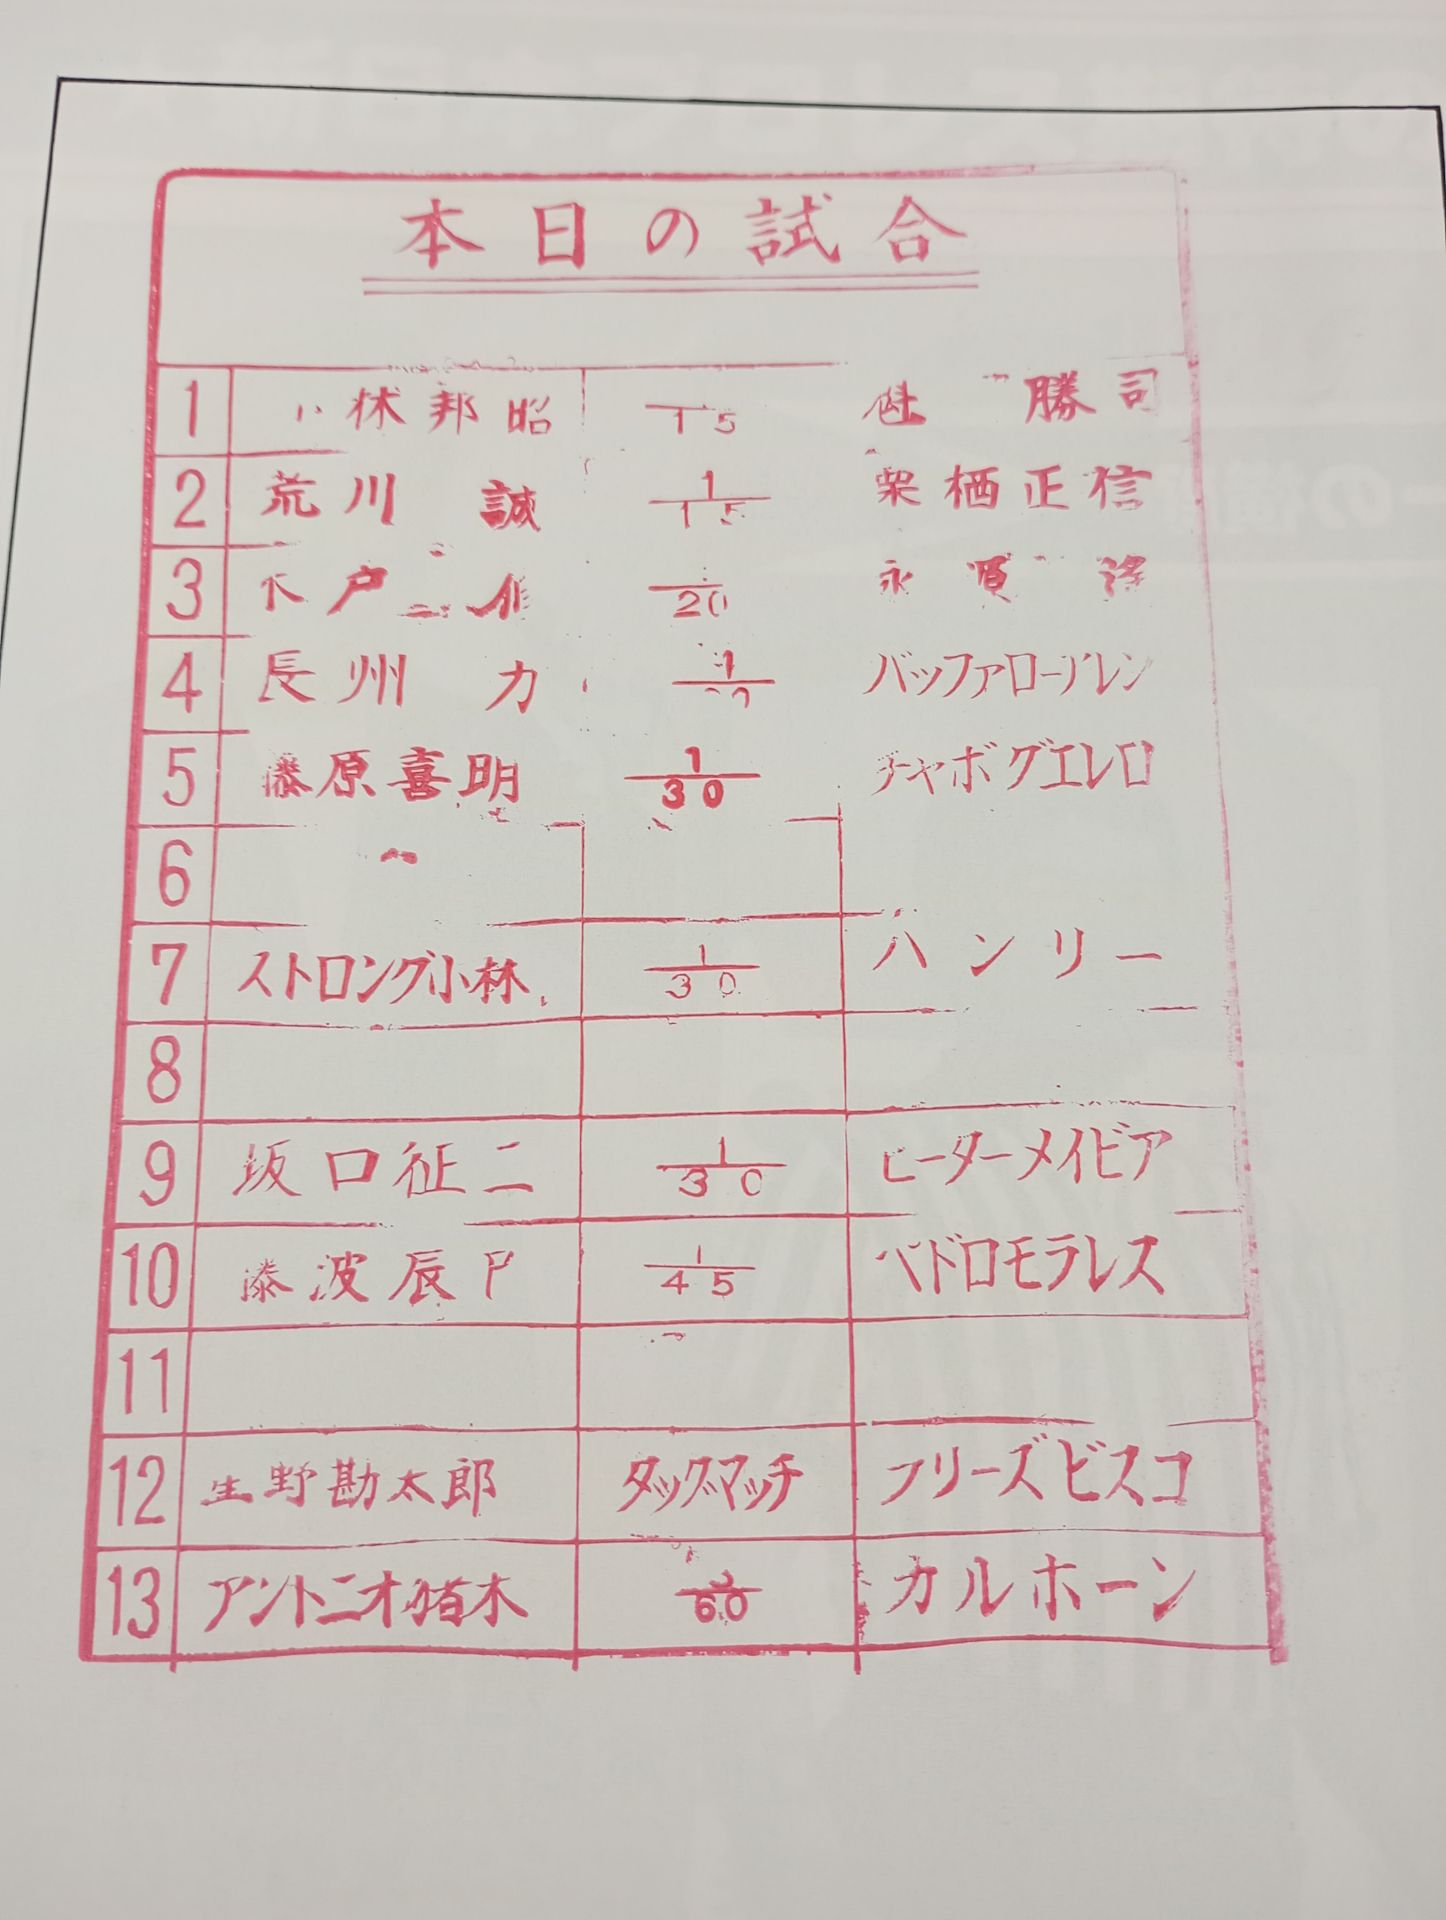 本日の試合
1 小林邦昭 1/15 魁 勝司
2 荒川 誠 1/15 柴栖正信
3 木戸 修 20 永源
4 長州 力 1 バッファローアレン
5 藤原喜明 1/30 チャボゲエレロ
6
7 ストロング小林 1/30 ハンリー
8
9 坂口征二 1/30 ピーターメイビア
10 藤波辰巳 1/45 ペドロモラレス
11
12 生野勘太郎 タッグマッチ フリーズビスコ
13 アントニオ猪木 3/60 カルホーン